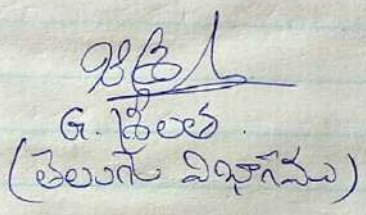 G. శ్రీలత.
(తెలుగు విభాగము)